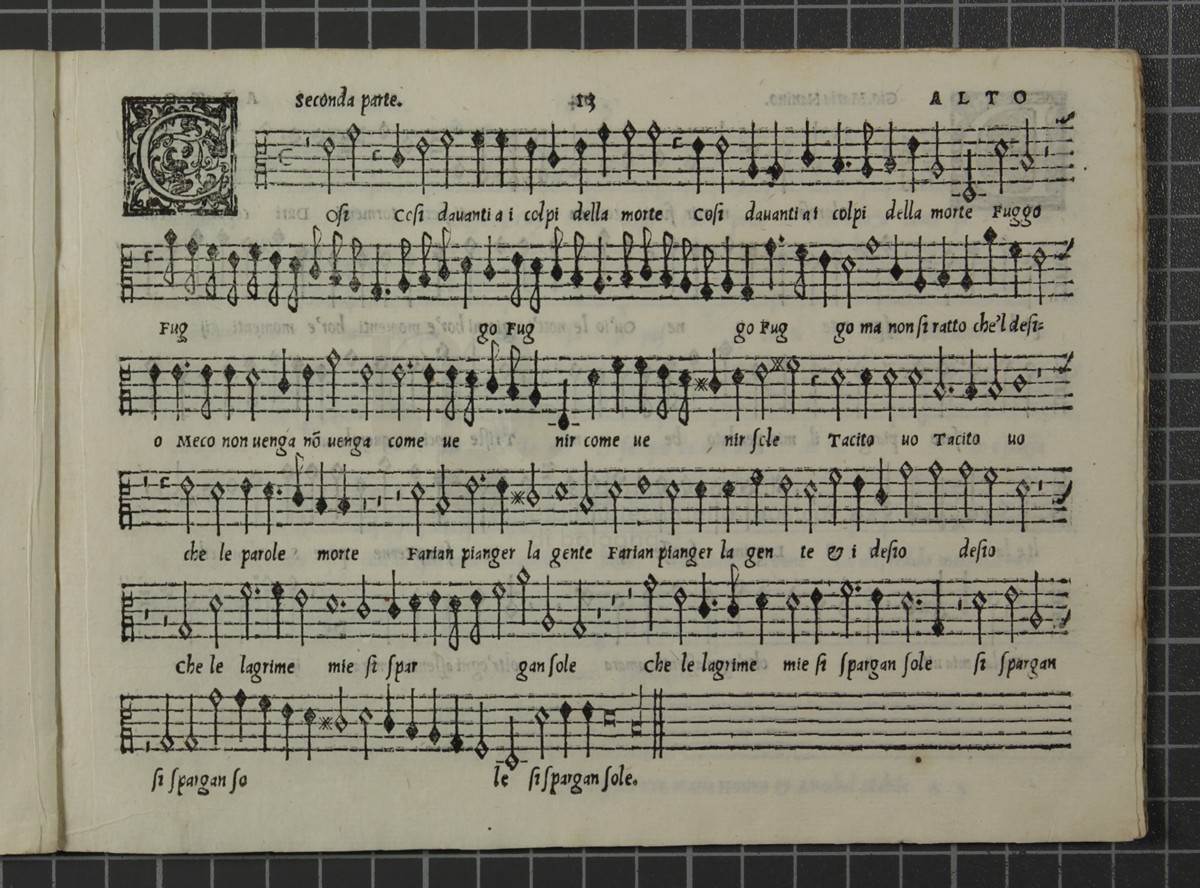 Seconda parte. 13 ALTO
COsi Cosi dauanti a i colpi della morte Cosi dauanti ai colpi della morte Fuggo
Fug go Fug go Fug go ma non si ratto che'l desi=
o Meco non uenga nõ uenga come ue nir come ue nir sole Tacito uo Tacito uo
che le parole morte Farian pianger la gente Farian pianger la gen te & i desio desio
Che le lagrime mie si spar gan sole che le lagrime mie si spargan sole si spargan
si spargan so le si spargan sole.